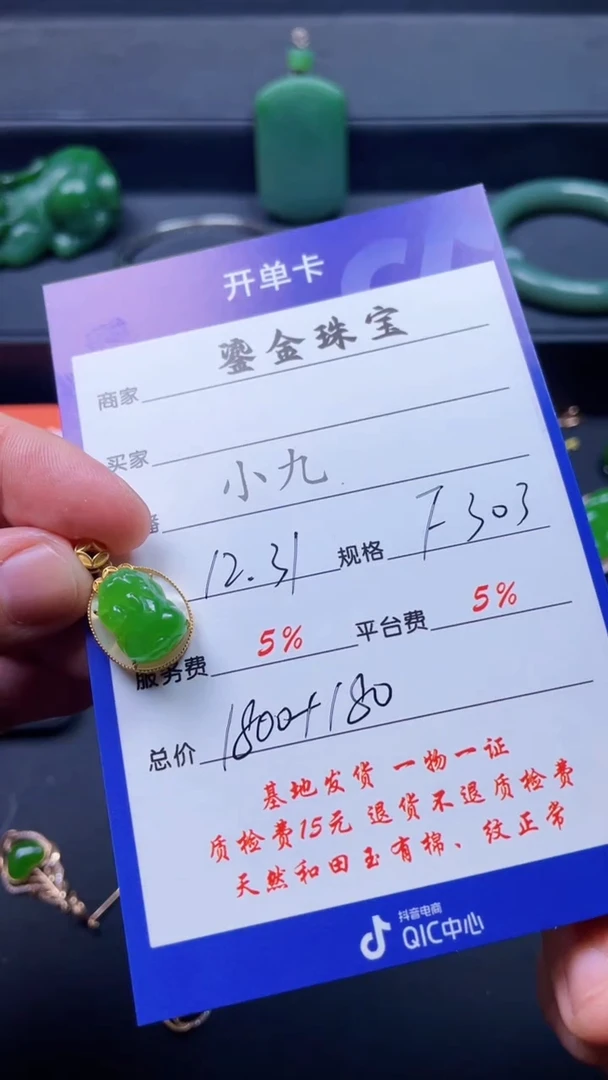 开单卡
商家 鎏金珠宝
买家
播 小九
12.31 规格 F303
服务费 5% 平台费 5%
总价 1800+180
基地发货 一物一证
质检费15元 退货不退质检费
天然和田玉有棉、纹正常
抖音电商
QIC中心